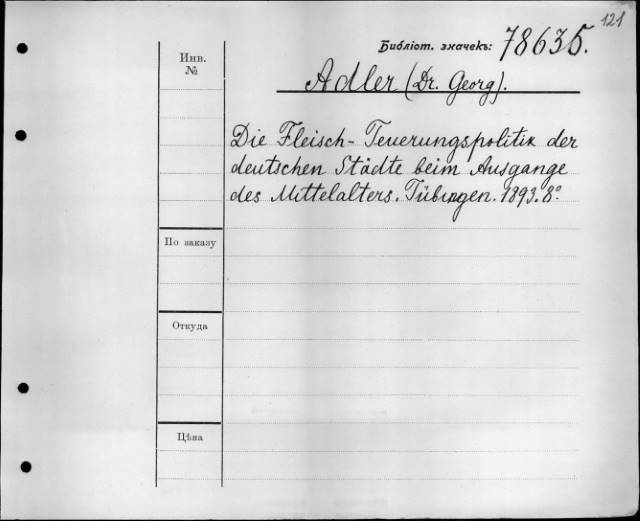 121
Библіот. значекъ: 78635.
Инв.
№
Adler (Dr. Georg).
Die Fleisch-Teuerungspolitik der
deutschen Städte beim Ausgange
des Mittelalters. Tübingen. 1893. 8°
По заказу
Откуда
Цѣна